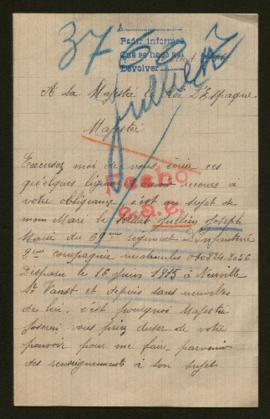 37
Pedir informes
Que se haga así
Devolver
A Sa Majesté le Roi D'Espagne
Majesté
Excusez moi de vous écrire ces
quelques lignes avoir recours à
votre obligeance c'est au sujet de
mon Mari le soldat Jullien Joseph
Marie du 69eme régiment D'infanterie
9eme compagnie matricule
Disparu le 16 juin 1915 à Neuville
St Vaast et depuis sans nouvelles
de lui, c'est pourquoi Majesté
j'oserai vous prier d'user de votre
pouvoir pour me faire parvenir
des renseignements à son sujet
Jullien
Hecho